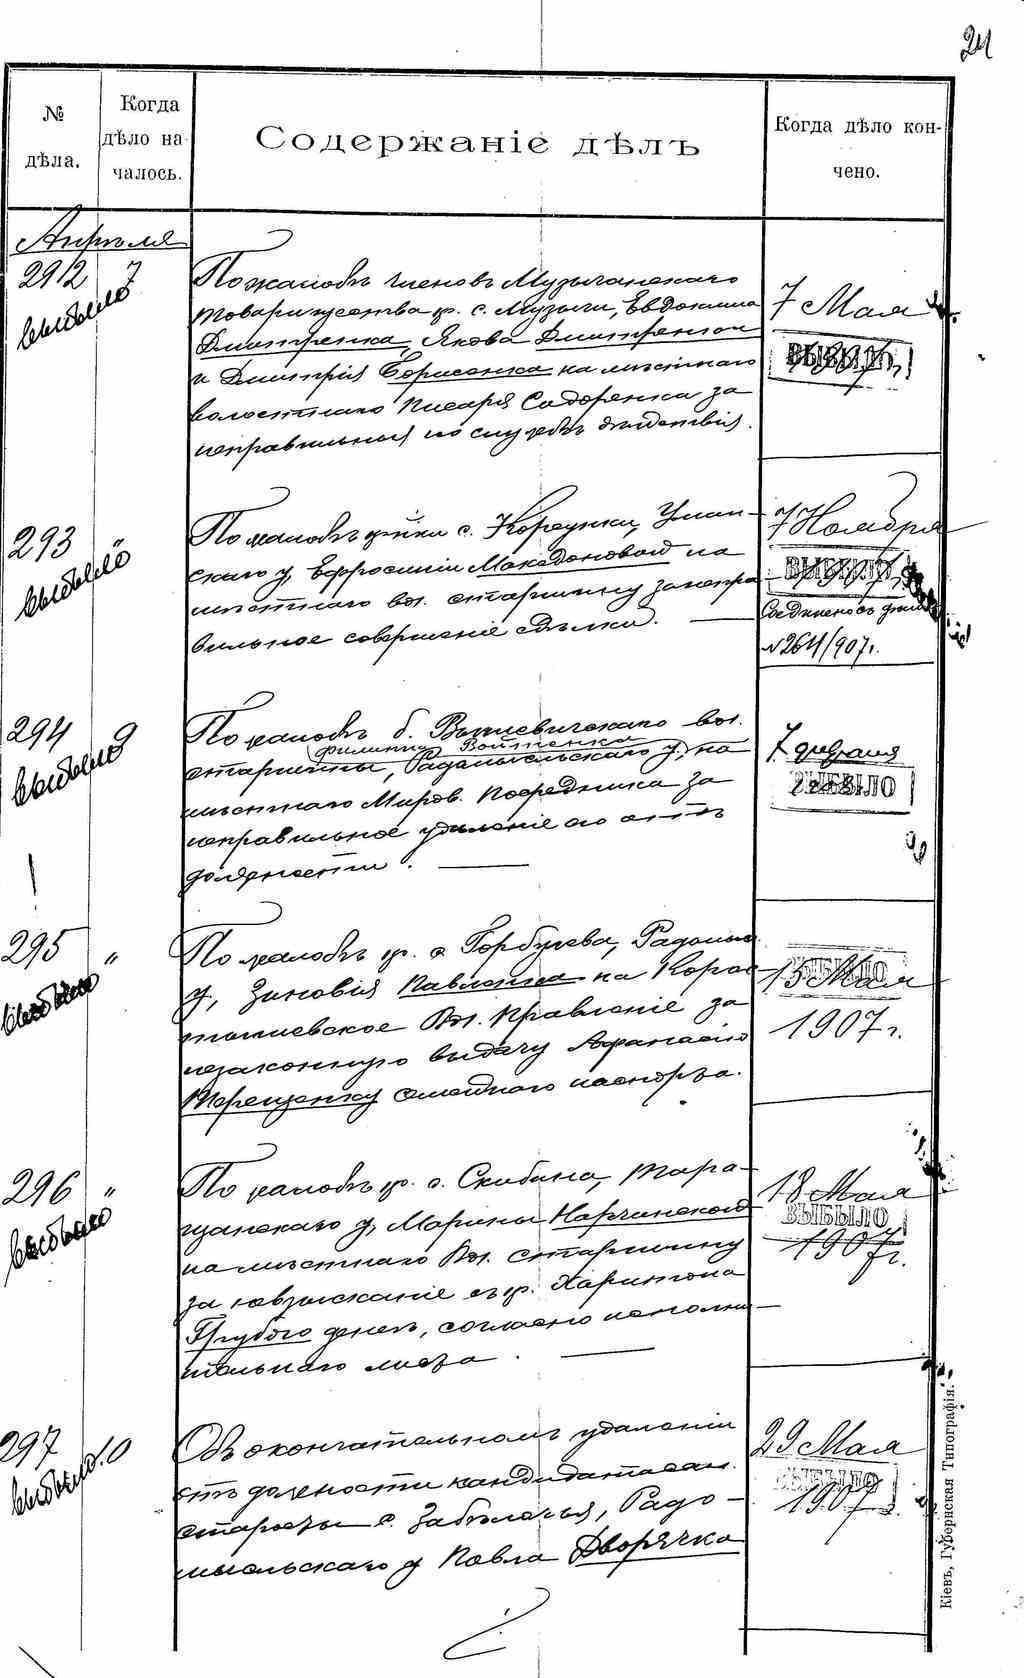 24
№ дѣла.
Когда дѣло на-
чалось.
Содержаніе дѣлъ
Когда дѣло кон-
чено.
Апрѣля
292
7
выбыло
По жалобѣ членовъ Музычанскаго
товарищества кр. с. Музычи, Евдокима
Дмитренка, Якова Дмитренка
и Дмитрія Борисенка на мѣстнаго
волостнаго писаря Сидоренка за
неправильныя по службѣ дѣйствія.
7 Мая
ВЫБЫЛО
1907 г.
293
"
выбыло
По жалобѣ с. Корсунки, Уман-
скаго у, Ефросиніи Македоновой на
мѣстнаго вол. старшину за непра-
вильное совершеніе сдѣлки.
7 Ноября
ВЫБЫЛО
1907 г.
Соединено съ дѣломъ
№ 264/907 г.
294
9
выбыло
По жалобѣ б. Вышевичскаго вол.
Филиппа Войтенка
старшины, Радомысльскаго у, на
мѣстнаго Миров. Посредника за
неправильное удаленіе его отъ
должности.
7 февраля
ВЫБЫЛО
295
"
выбыло
По жалобѣ кр. с. Горбулева, Радомыс.
у, Зиновія Павленка на Корос-
тышевское Вол. Правленіе за
незаконную выдачу Афанасію
Терещенку семейнаго паспорта.
ВЫБЫЛО
15 Мая
1907 г.
296
"
выбыло
По жалобѣ кр. с. Скибина, Тара-
щанскаго у, Марины Нарчинской
на мѣстнаго Вол. старшину
за невзысканіе съ кр. Харитона
Грубого денегъ, согласно исполни-
тельнаго листа.
18 Мая
ВЫБЫЛО
1907 г.
297
10
выбыло
Объ окончательномъ удаленіи
отъ должности кандидата сел.
старосты с. Забѣлочья, Радо-
мысльскаго у Павла Дворячка
29 Мая
ВЫБЫЛО
1907 г.
Кіевъ, Губернская Типографія.